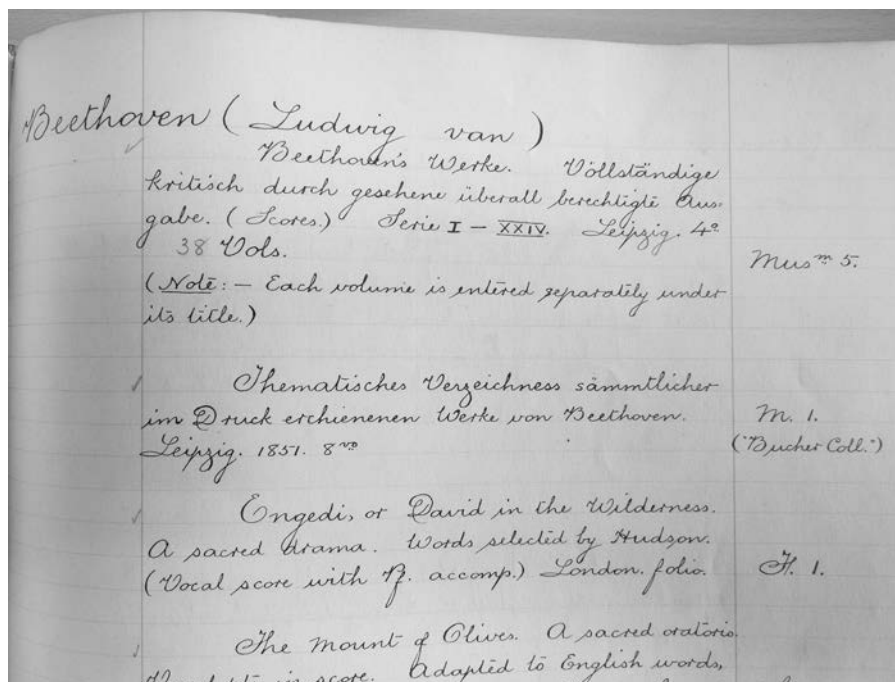 Beethoven ( Ludwig van )
Beethoven's Werke. Vollständige
kritisch durch gesehene überall berechtigte Aus-
gabe. (Scores.) Serie I – XXIV. Leipzig. 4o
38 Vols.
Mus m 5.
(Note: – Each volume is entered separately under
its title.)
Thematisches Verzeichness sämmtlicher
im Druck erchienenen Werke von Beethoven.
M. 1.
Leipzig. 1851. 8vo
("Bucher Coll.")
Engedi, or David in the Wilderness.
A sacred drama. Words selected by Hudson.
(Vocal score with Pf. accomp.) London. folio.
H. 1.
The Mount of Olives. A sacred oratorio.
in score. Adapted to English words,